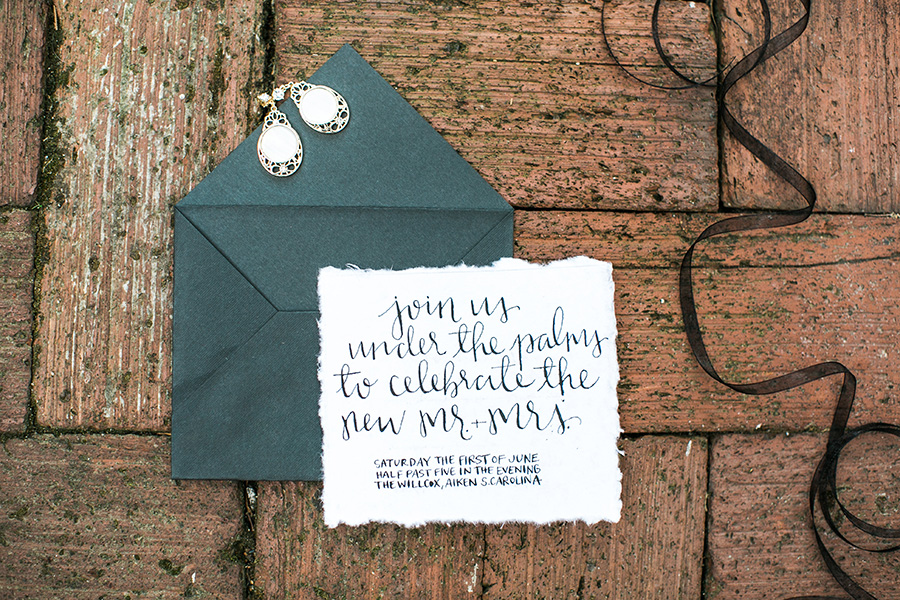 join us
under the palms
to celebrate the
new mr. + mrs.
SATURDAY THE FIRST OF JUNE
HALF PAST FIVE IN THE EVENING
THE WILLCOX, AIKEN S. CAROLINA